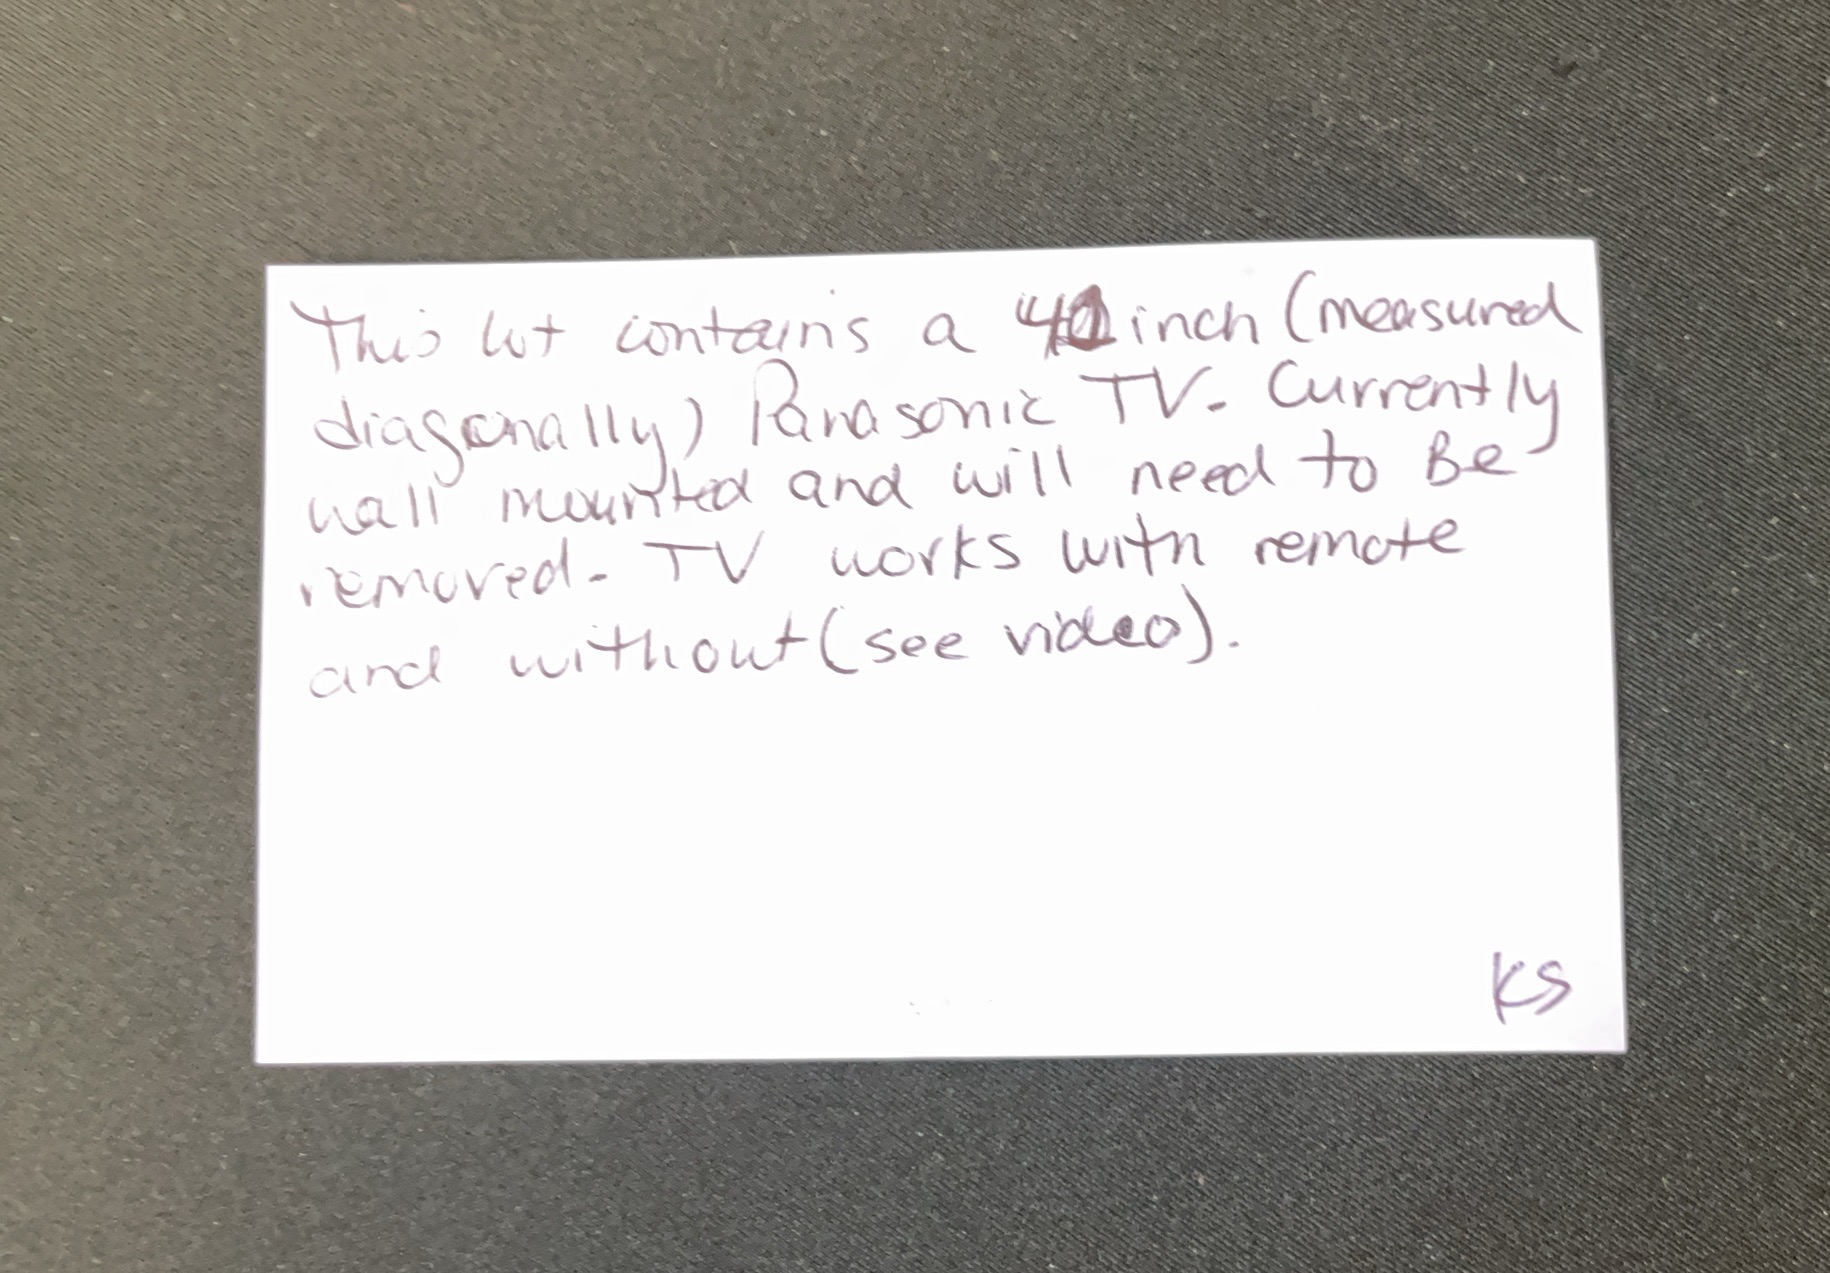 This lot contains a inch (measured
diagonally) Panasonic TV. Currently
wall mounted and will need to Be
removed. TV works with remote
and without (see video).
KS